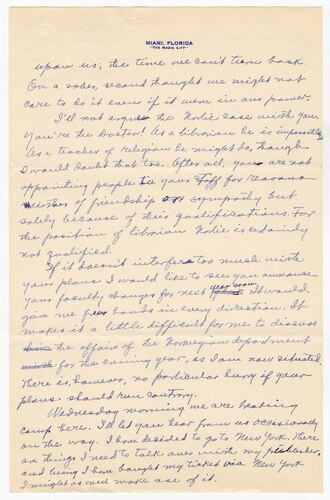 MIAMI, FLORIDA
"THE MAGIC CITY"
upon us; the time we can't turn back.
On a sober, second thought we might not
care to do it even if it were in our power.
I'll not argue the Hotie case with you.
You're the Doctor! As a librarian he is impossible.
As a teacher of religion he might do, though
I would doubt that too. After all, you are not
appointing people to your staff for reasons
either of friendship or sympathy but
solely because of their qualifications. For
the position of librarian Hotie is certainly
not qualified.
If it doesn't interfere too much with
your plans I would like to see you announce
your faculty changes for next year soon. It would
give me freer hands in every direction. It
makes it a little difficult for me to discuss
the affairs of the Norwegian department
for the coming year, as I am now situated.
There is, however, no particular hurry if your
plans should run contrary.
Wednesday morning we are breaking
camp here. I'll let you hear from us occasionally
on the way. I have decided to go to New York. There
are things I need to talk over with my publisher,
and having I have bought my ticket via New York
I might as well make use of it.